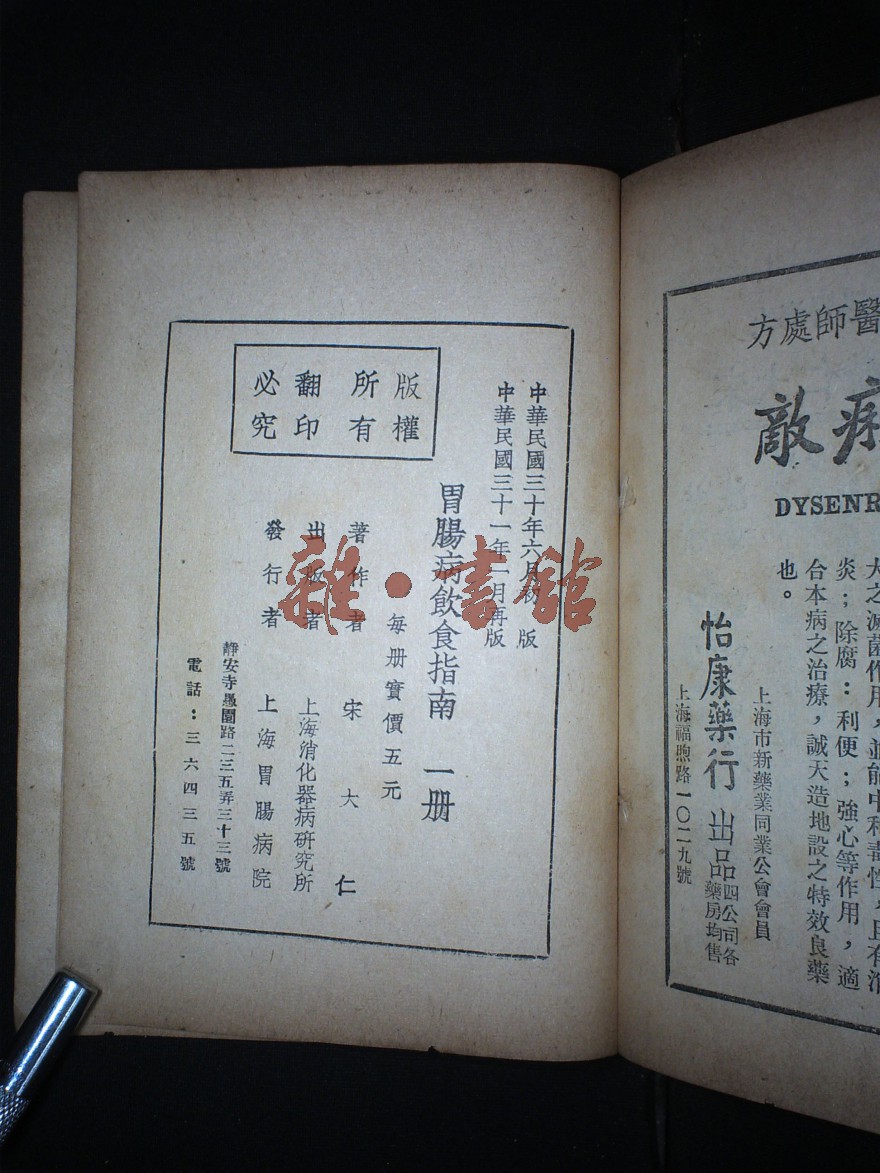 醫師處方
敵
DYSENR
大之滅菌作用，並能中和毒性，且有消
炎；除腐：利便；強心等作用，適
合本病之治療，誠天造地設之特效良藥
也。
上海市新藥業同業公會會員
怡康藥行 出品 四公司各藥房均售
上海福煦路一〇二九號
中華民國三十年六月初版
中華民國三十一年一月再版
胃腸病飲食指南 一册
每册實價五元
著作者 宋大仁
出版者 上海消化器病研究所
發行者 上海胃腸病院
靜安寺愚園路二三五弄三十三號
電話：三六四三五號
版權
所有
翻印
必究
雜·書館